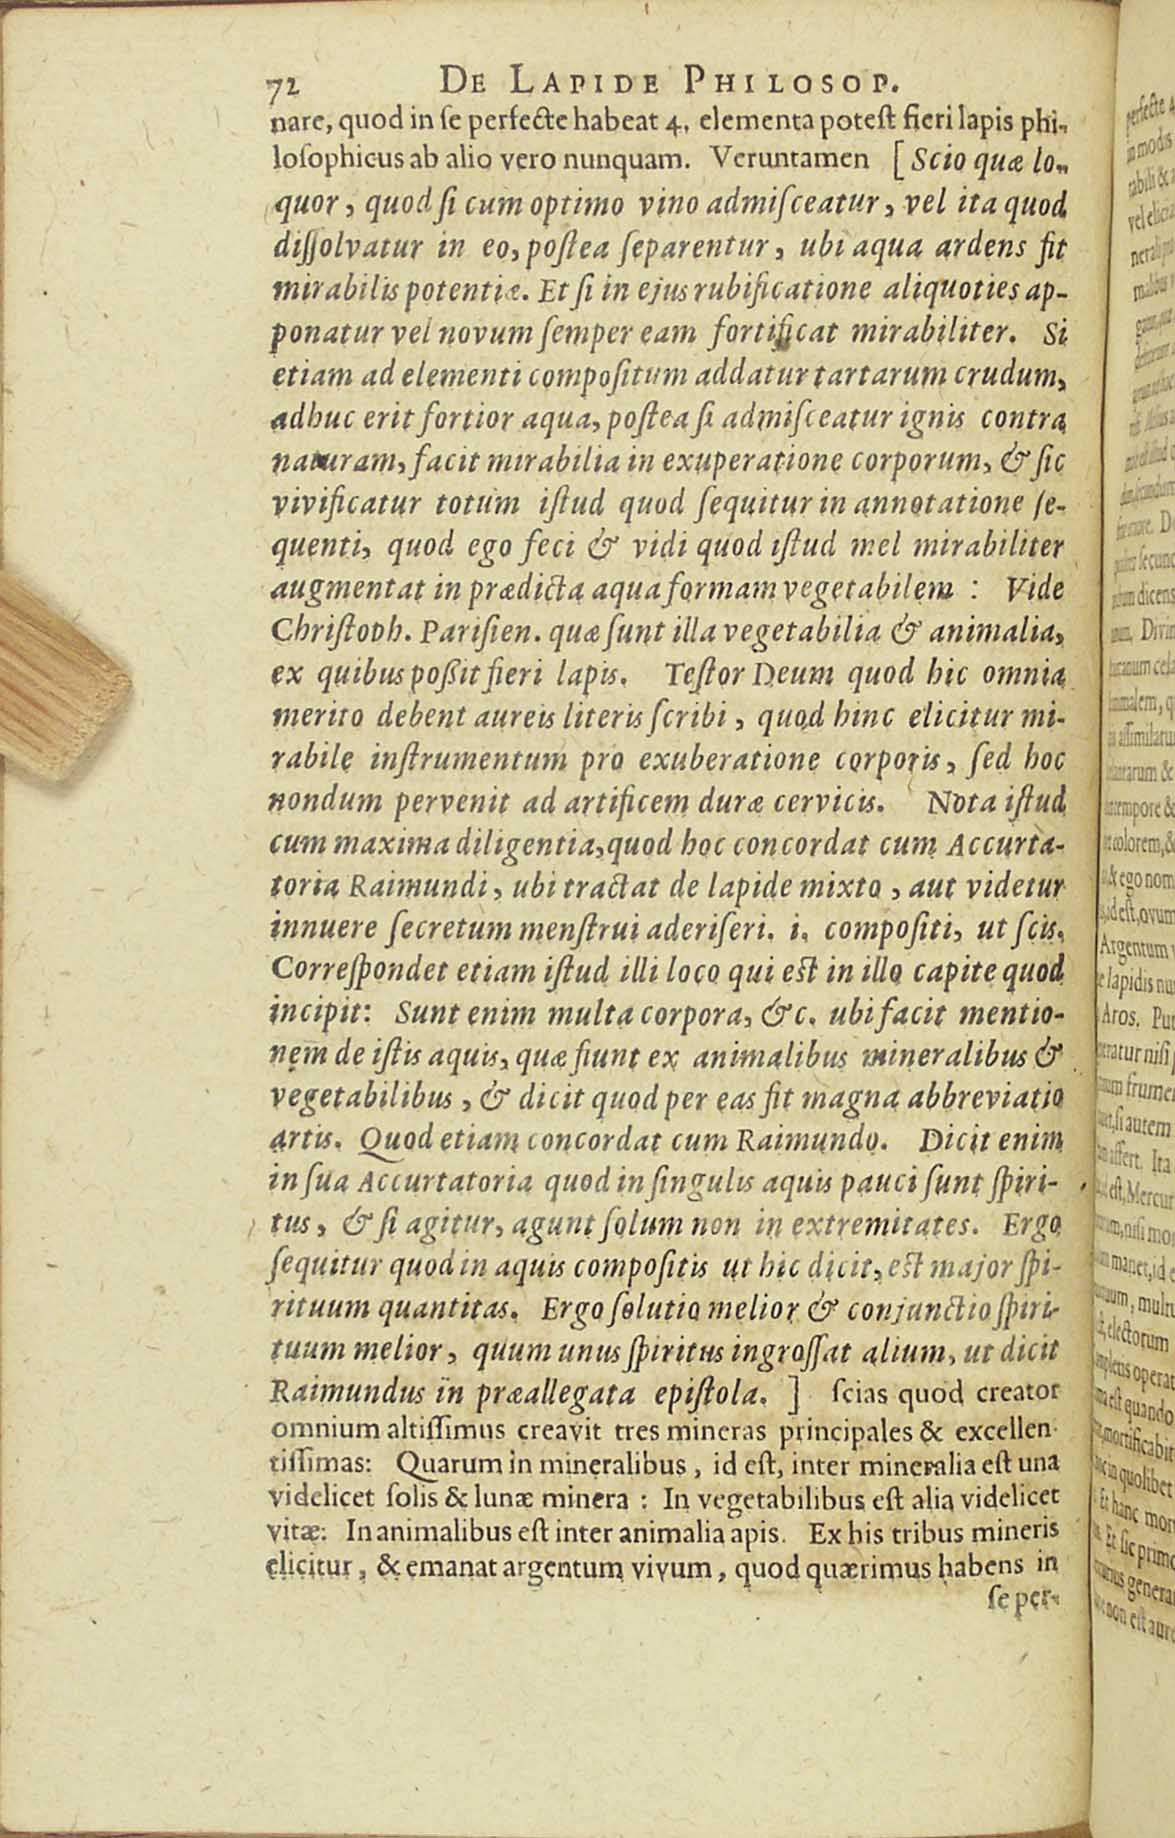 72 DE LAPIDE PHILOSOP.
nare, quod in ſe perfecte habeat 4. elementa poteſt fieri lapis phi-
loſophicus ab alio vero nunquam. Veruntamen [Scio quæ lo-
quor, quod ſi cum optimo vino admiſceatur, vel ita quod
diſſolvatur in eo, poſtea ſeparentur, ubi aqua ardens fit
mirabilis potentiæ. Et ſi in ejus rubificatione aliquoties ap-
ponatur vel novum ſemper eam fortificat mirabiliter. Si
etiam ad elementi compoſitum addatur tartarum crudum,
adhuc erit fortior aqua, poſtea ſi admiſceatur ignis contra
naturam, facit mirabilia in exuperatione corporum, & ſic
vivificatur totum iſtud quod ſequitur in annotatione ſe-
quenti, quod ego feci & vidi quod iſtud mel mirabiliter
augmentat in prædicta aqua formam vegetabilem : Vide
Chriſtoph. Pariſien. quæ ſunt illa vegetabilia & animalia,
ex quibus poßit fieri lapis. Teſtor Deum quod hic omnia
merito debent aureis literis ſcribi, quod hinc elicitur mi-
rabile inſtrumentum pro exuberatione corporis, ſed hoc
nondum pervenit ad artificem duræ cervicis. Nota iſtud
cum maxima diligentia, quod hoc concordat cum Accurta-
toria Raimundi, ubi tractat de lapide mixto, aut videtur
innuere ſecretum menſtrui aderiſeri. i. compoſiti, ut ſcis.
Correſpondet etiam iſtud illi loco qui eſt in illo capite quod
incipit: Sunt enim multa corpora, &c. ubi facit mentio-
nem de iſtis aquis, quæ fiunt ex animalibus mineralibus &
vegetabilibus, & dicit quod per eas fit magna abbreviatio
artis. Quod etiam concordat cum Raimundo. Dicit enim
in ſua Accurtatoria quod in ſingulis aquis pauci ſunt ſpiri-
tus, & ſi agitur, agunt ſolum non in extremitates. Ergo
ſequitur quod in aquis compoſitis ut hic dicit, eſt major ſpi-
rituum quantitas. Ergo ſolutio melior & conjunctio ſpiri-
tuum melior, quum unus ſpiritus ingroſſat alium, ut dicit
Raimundus in præallegata epiſtola. ] ſcias quod creator
omnium altiſſimus creavit tres mineras principales & excellen-
tiſſimas: Quarum in mineralibus, id eſt, inter mineralia eſt una
videlicet ſolis & lunæ minera : In vegetabilibus eſt alia videlicet
vitæ: In animalibus eſt inter animalia apis. Ex his tribus mineris
elicitur, & emanat argentum vivum, quod quærimus habens in
ſe per-